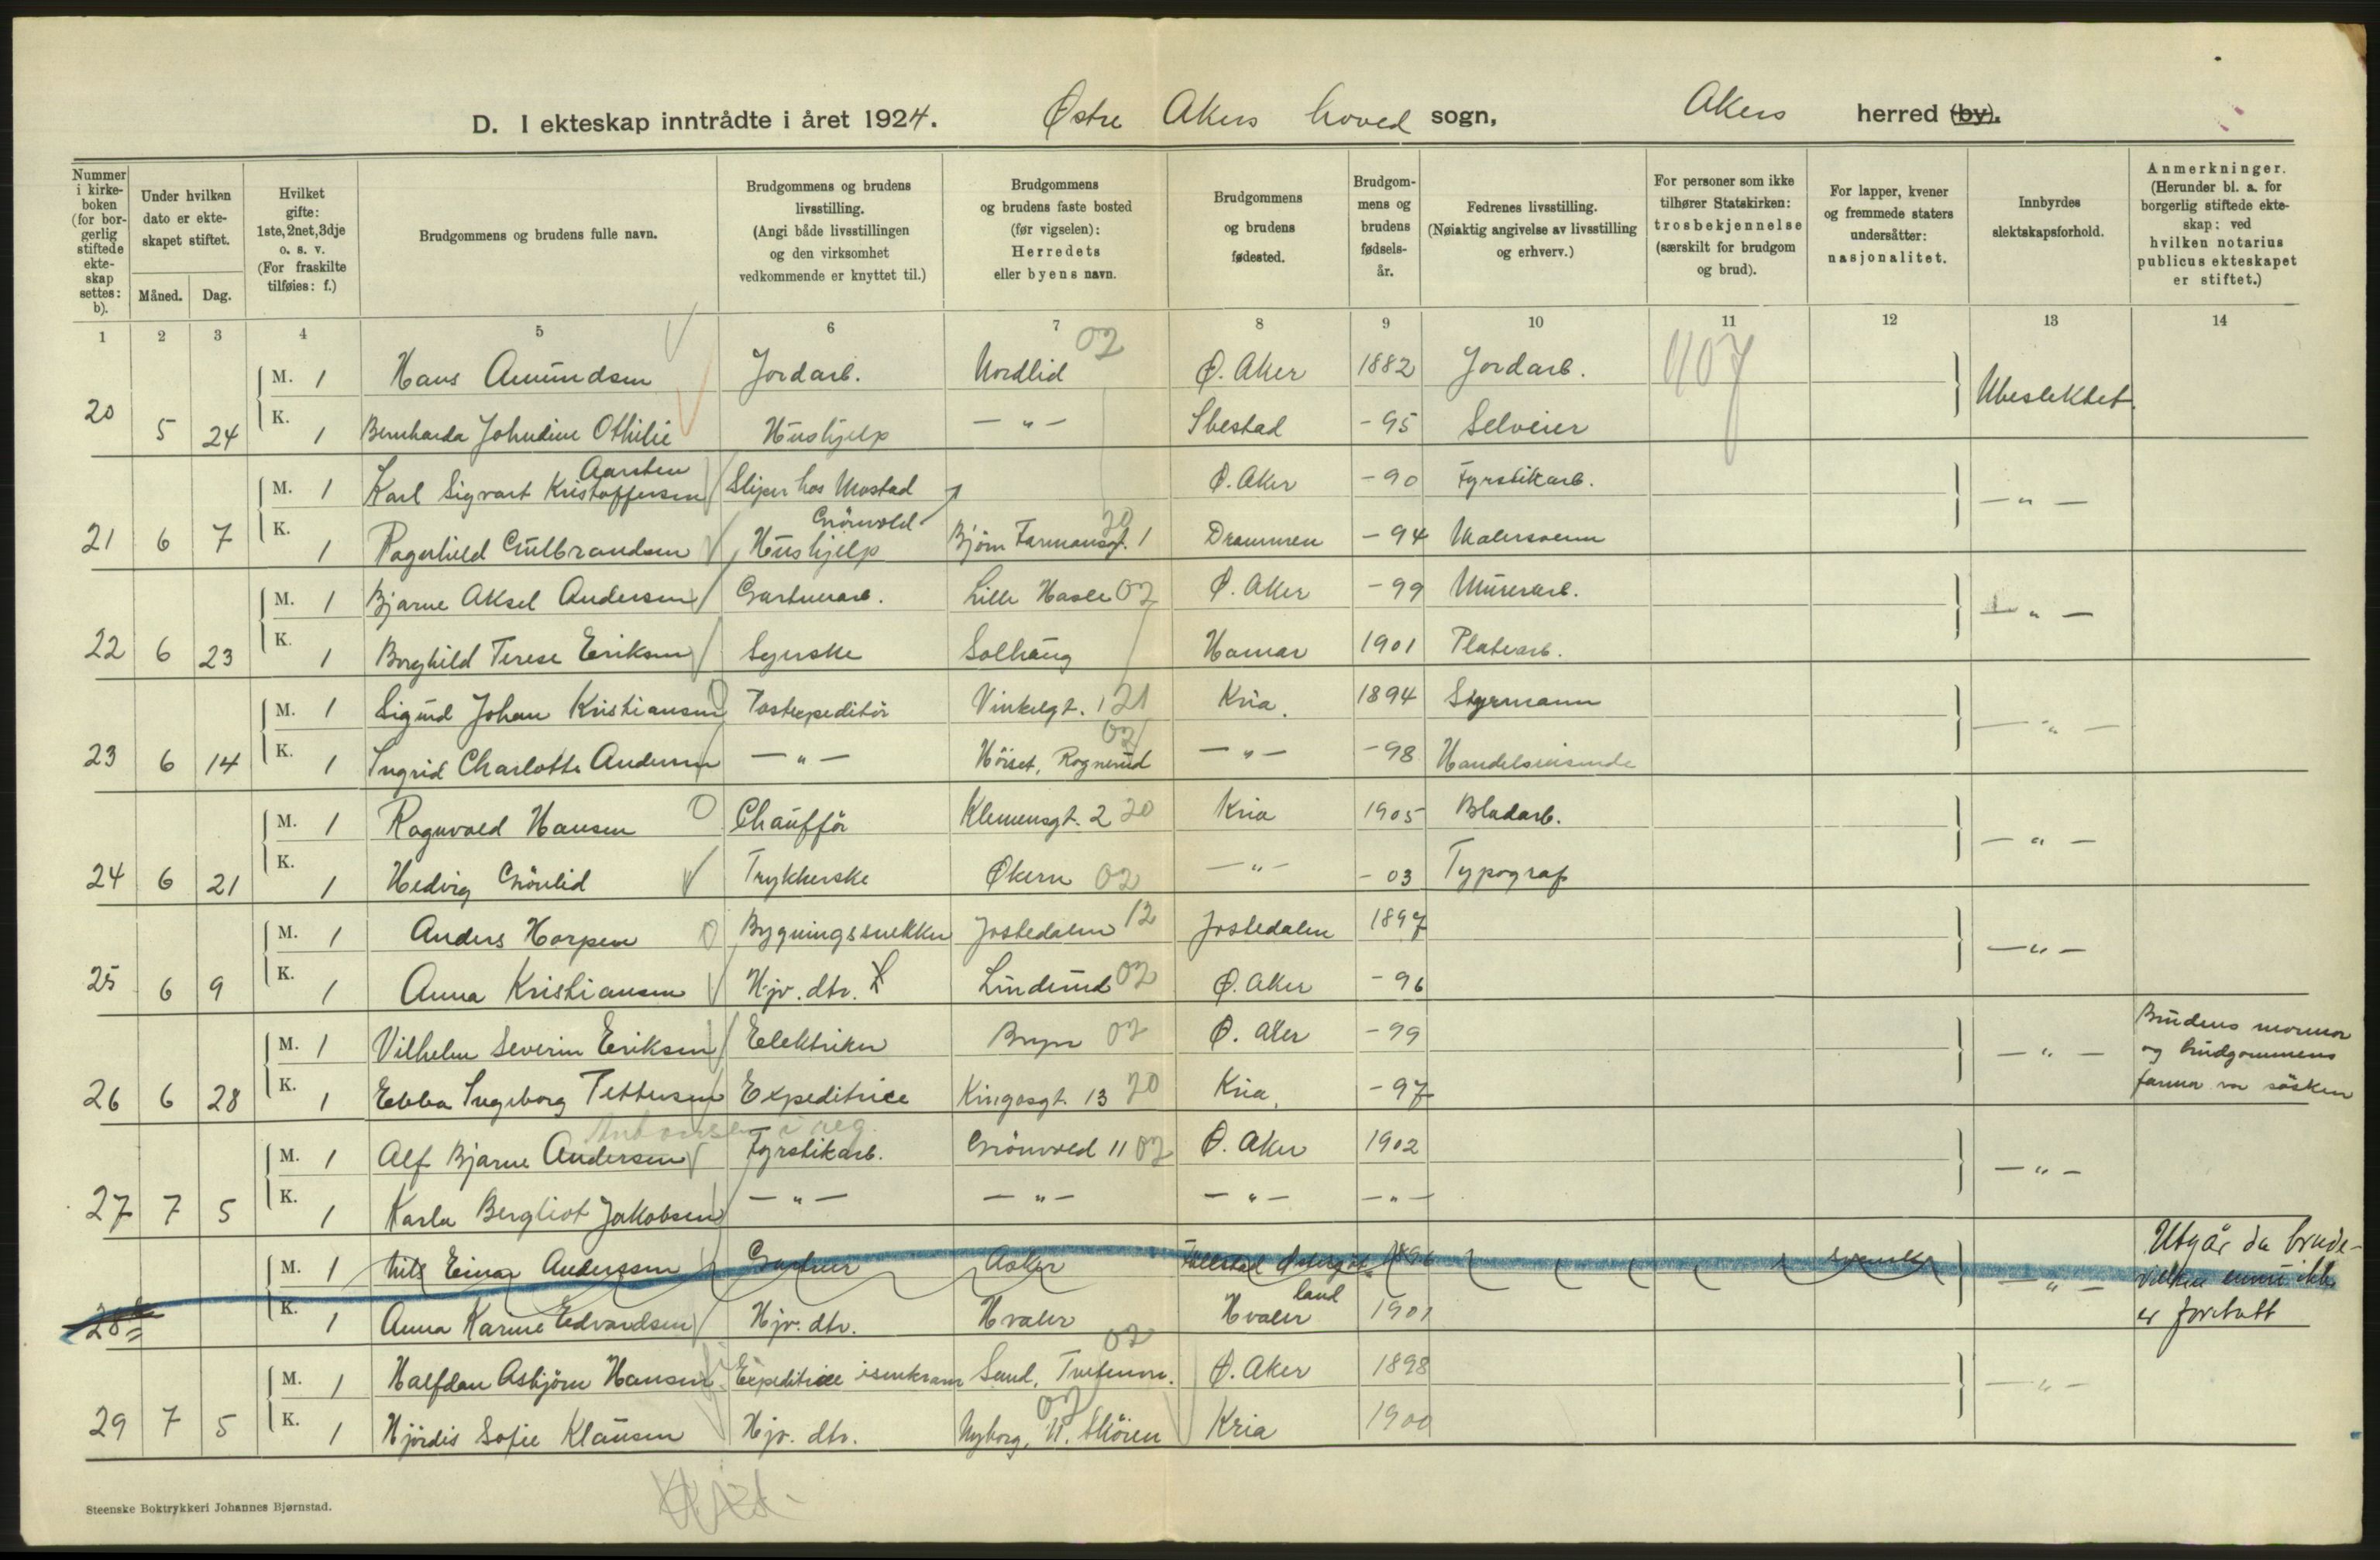 D. I ekteskap inntrådte i året 1924. Østre Akers hoved sogn, Akers herred (by).
Nummer i kirkeboken (for borgerlig stiftede ekteskap settes: b).
Under hvilken dato er ekteskapet stiftet.
Måned. Dag.
Hvilket gifte: 1ste, 2net, 3dje o. s. v. (For fraskilte tilføies: f.)
Brudgommens og brudens fulle navn.
Brudgommens og brudens livsstilling. (Angi både livsstillingen og den virksomhet vedkommende er knyttet til.)
Brudgommens og brudens faste bosted (før vigselen): Herredets eller byens navn.
Brudgommens og brudens fødested.
Brudgommens og brudens fødselsår.
Fedrenes livsstilling. (Nøiaktig angivelse av livsstilling og erhverv.)
For personer som ikke tilhører Statskirken: trosbekjennelse (særskilt for brudgom og brud).
For lapper, kvener og fremmede staters undersåtter: nasjonalitet.
Innbyrdes slektskapsforhold.
Anmerkninger. (Herunder bl. a. for borgerlig stiftede ekteskap: ved hvilken notarius publicus ekteskapet er stiftet.)
1 2 3 4 5 6 7 8 9 10 11 12 13 14
02
M. 1 Hans Amundsen Jordarb. Nordlid Ø. Aker 1882 Jordarb. 1107 Ubeslektet.
20 5 24 K. 1 Bernharda Johndine Othilie Hushjelp — " — Ibestad -95 Selveier
Aarsten
M. 1 Karl Sigvart Kristoffersen Sliper hos Mustad Ø. Aker -90 Fyrstikarb. — " —
Grönvold 20
21 6 7 K. 1 Ragnhild Gulbrandsen Hushjelp Bjørn Farmansgt. 1 Drammen -94 Malersvenn
M. 1 Bjarne Aksel Andersen Gartnerarb. Lille Hasle 02 Ø. Aker -99 Murerarb. — " —
22 6 23 K. 1 Borghild Terese Eriksen Syerske Solhaug Hamar 1901 Platearb.
M. 1 Sigurd Johan Kristiansen Postexpeditör Vinkelgt. 1 21 Kria. 1894 Styrmann — " —
02
23 6 14 K. 1 Ingrid Charlotte Andersen — " — Höiset, Rognerud — " — -98 Handelsreisende
M. 1 Ragnvald Hansen Chaufför Klemensgt. 2 20 Kria 1905 Bladarb. — " —
24 6 21 K. 1 Hedvig Grönlid Trykkerske Økern 02 — " — -03 Typograf
M. 1 Anders Horpen Bygningssnekker Jostedalen 12 Jostedalen 1897 — " —
25 6 9 K. 1 Anna Kristiansen Hjv. dtr. Linderud 02 Ø. Aker -96
M. 1 Vilhelm Severin Eriksen Elektriker Bryn 02 Ø. Aker -99 — " — Brudens mormor og brudgommens farmor var søsken
26 6 28 K. 1 Ebba Ingeborg Pettersen Expeditrice Kingosgt. 13 20 Kria. -97
Antonsen i reg.
M. 1 Alf Bjarne Andersen Fyrstikarb. Grönvold 11 02 Ø. Aker 1902 — " —
27 7 5 K. 1 Karla Bergliot Jakobsen — " — — " — — " — — " —
M. 1 Nils Einar Anderssen Gartner Asker Östergötland 1896 svensk — " — Utgår da brudevielsen ennu ikke er foretatt
28 K. 1 Anna Karine Edvardsen Hjv. dtr. Hvaler Hvaler 1901
02
M. 1 Halfdan Asbjörn Hansen Expeditrice isenkram Sand, Tveten Ø. Aker 1898 — " —
02
29 7 5 K. 1 Hjördis Sofie Klausen Hjv. dtr. Nyborg, N. Skören Kria 1900
Steenske Boktrykkeri Johannes Bjørnstad.